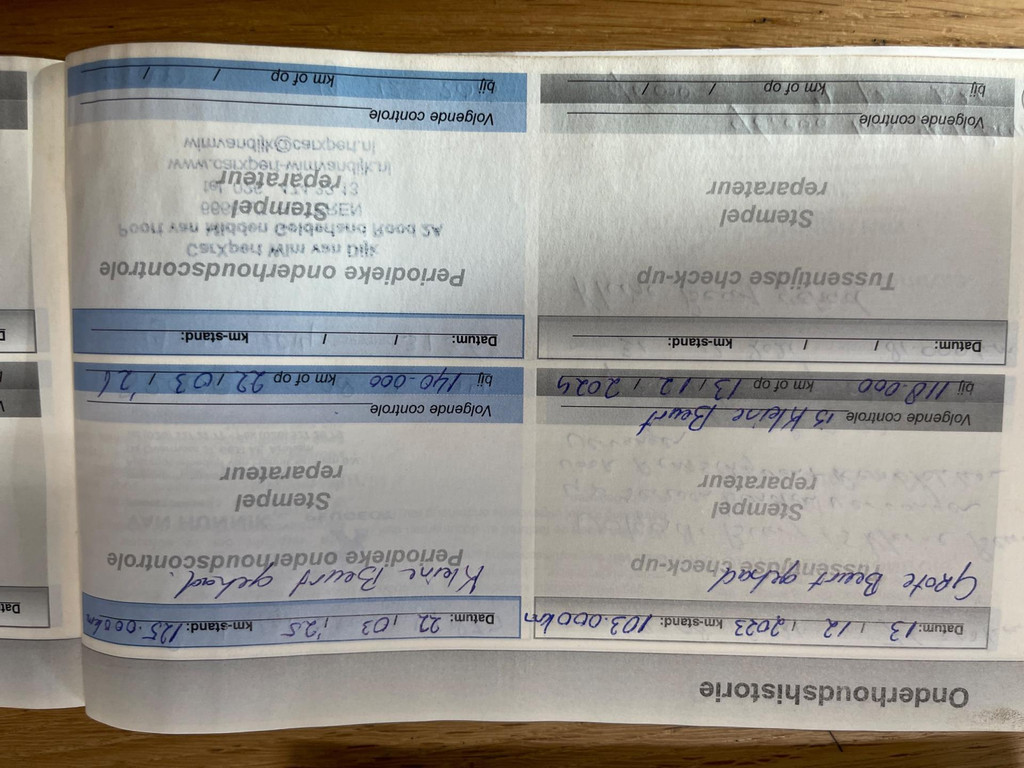 Onderhoudshistorie
Datum: 13 / 12 / 2023 km-stand: 103.000km
Tussentijdse check-up
Grote Beurt gehad
Stempel
reparateur
Volgende controle is Kleine Beurt
bij 118.000 km of op 13 / 12 / 2024
Datum: / / km-stand:
Tussentijdse check-up
Stempel
reparateur
Volgende controle
bij km of op / /
Datum: 22 / 03 / '25 km-stand: 125.000km
Periodieke onderhoudscontrole
Kleine Beurt gehad.
Stempel
reparateur
Volgende controle
bij 140.000 km of op 22 / 03 / '26
Datum: / / km-stand:
Periodieke onderhoudscontrole
CarXpert Wim van Dijk
Poort van Midden Gelderland Rood 2A
Stempel
reparateur
www.carxpert-wimvandijk.nl
wimvandijk@carxpert.nl
Volgende controle
bij km of op / /